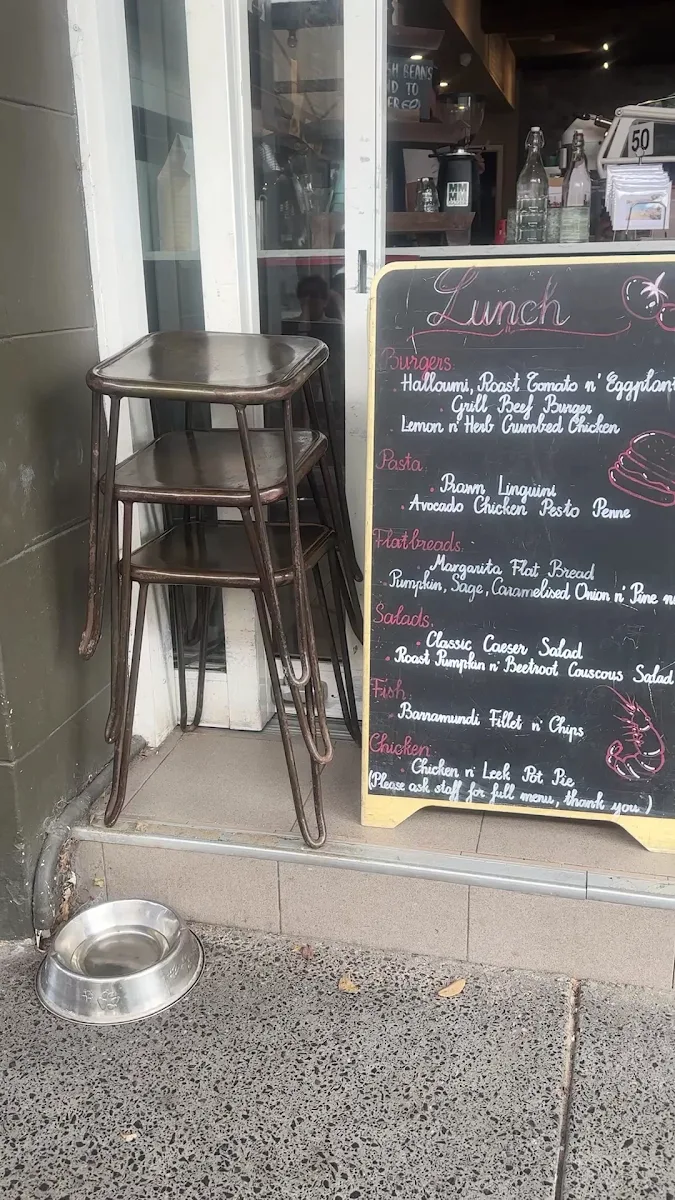 SH BEANS
ND TO
50
Lunch
Burgers
Halloumi, Roast Tomato n' Eggplant
Grill Beef Burger
Lemon n' Herb Crumbed Chicken
Pasta
Prawn Linguini
Avocado Chicken Pesto Penne
Flatbreads
Margarita Flat Bread
Pumpkin, Sage, Caramelised Onion n' Pine n
Salads
Classic Caeser Salad
Roast Pumpkin n' Beetroot Couscous Salad
Fish
Barramundi Fillet n' Chips
Chicken
Chicken n' Leek Pot Pie
(Please ask staff for full menu, thank you)